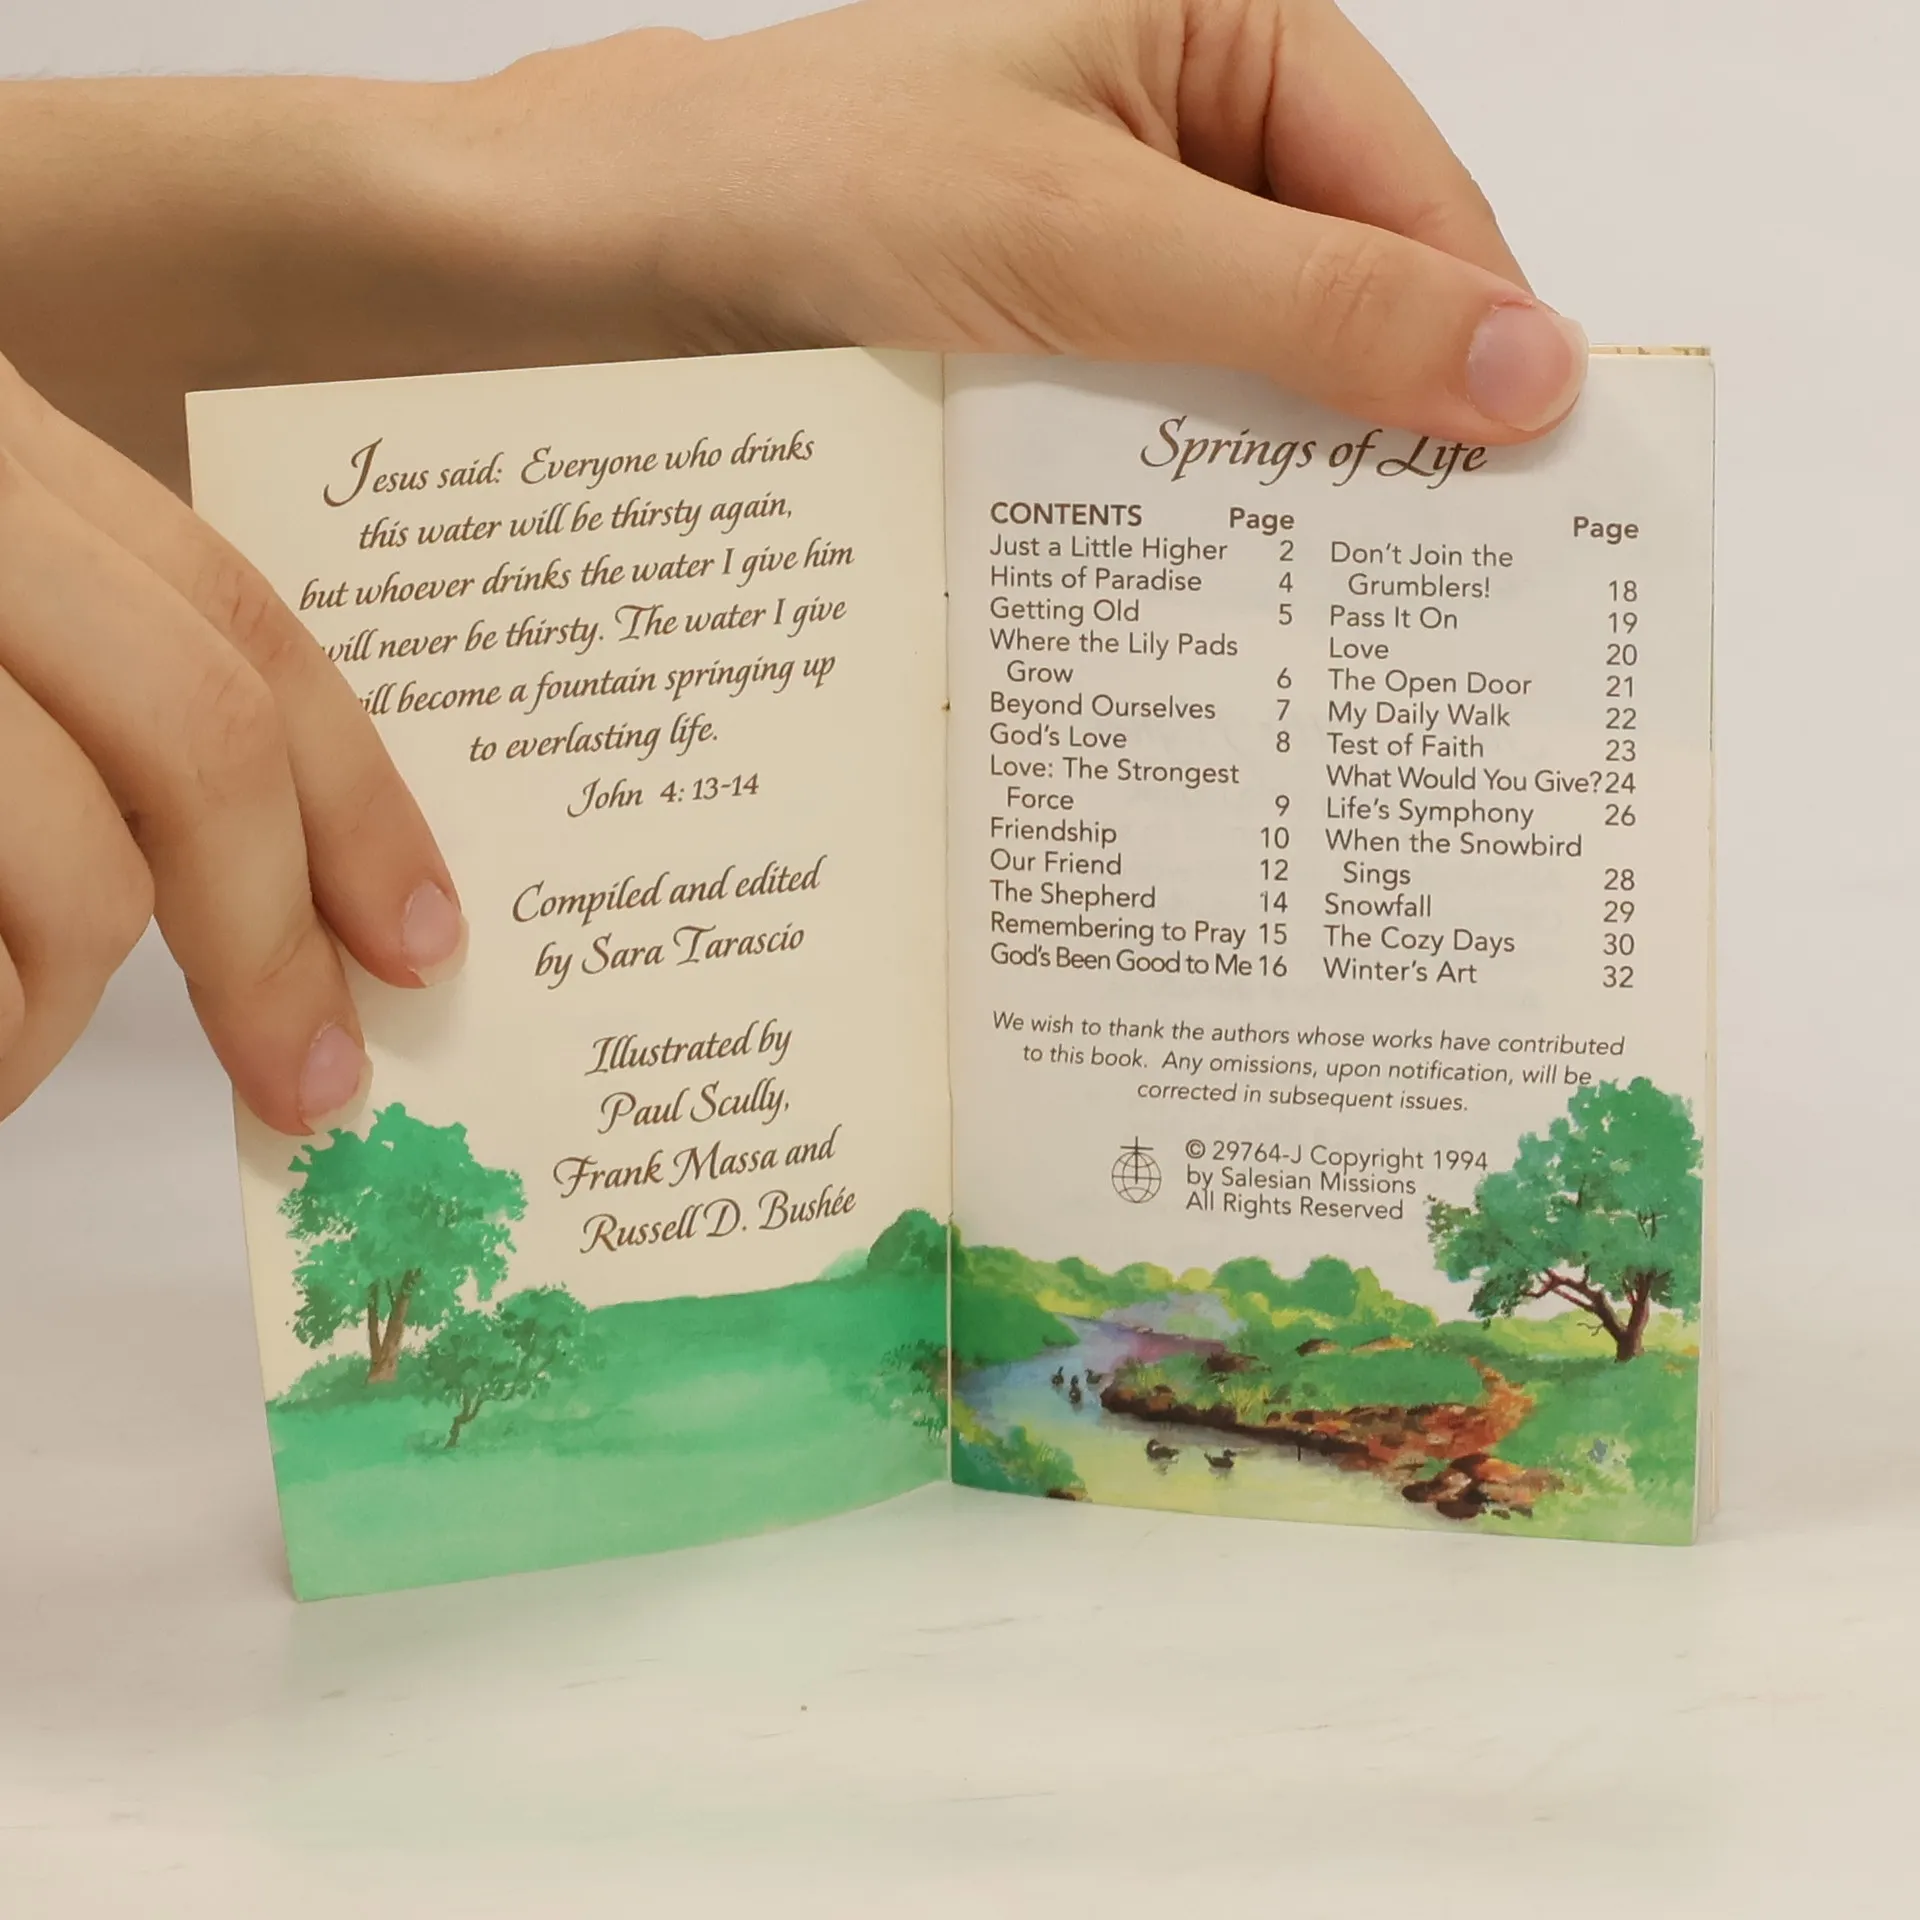 Jesus said: Everyone who drinks
this water will be thirsty again,
but whoever drinks the water I give him
will never be thirsty. The water I give
will become a fountain springing up
to everlasting life.
John 4:13-14
Compiled and edited
by Sara Tarascio
Illustrated by
Paul Scully,
Frank Massa and
Russell D. Bushée
Springs of Life
CONTENTS Page
Just a Little Higher 2
Hints of Paradise 4
Getting Old 5
Where the Lily Pads
Grow 6
Beyond Ourselves 7
God's Love 8
Love: The Strongest
Force 9
Friendship 10
Our Friend 12
The Shepherd 14
Remembering to Pray 15
God's Been Good to Me 16
Page
Don't Join the
Grumblers! 18
Pass It On 19
Love 20
The Open Door 21
My Daily Walk 22
Test of Faith 23
What Would You Give? 24
Life's Symphony 26
When the Snowbird
Sings 28
Snowfall 29
The Cozy Days 30
Winter's Art 32
We wish to thank the authors whose works have contributed
to this book. Any omissions, upon notification, will be
corrected in subsequent issues.
© 29764-J Copyright 1994
by Salesian Missions
All Rights Reserved